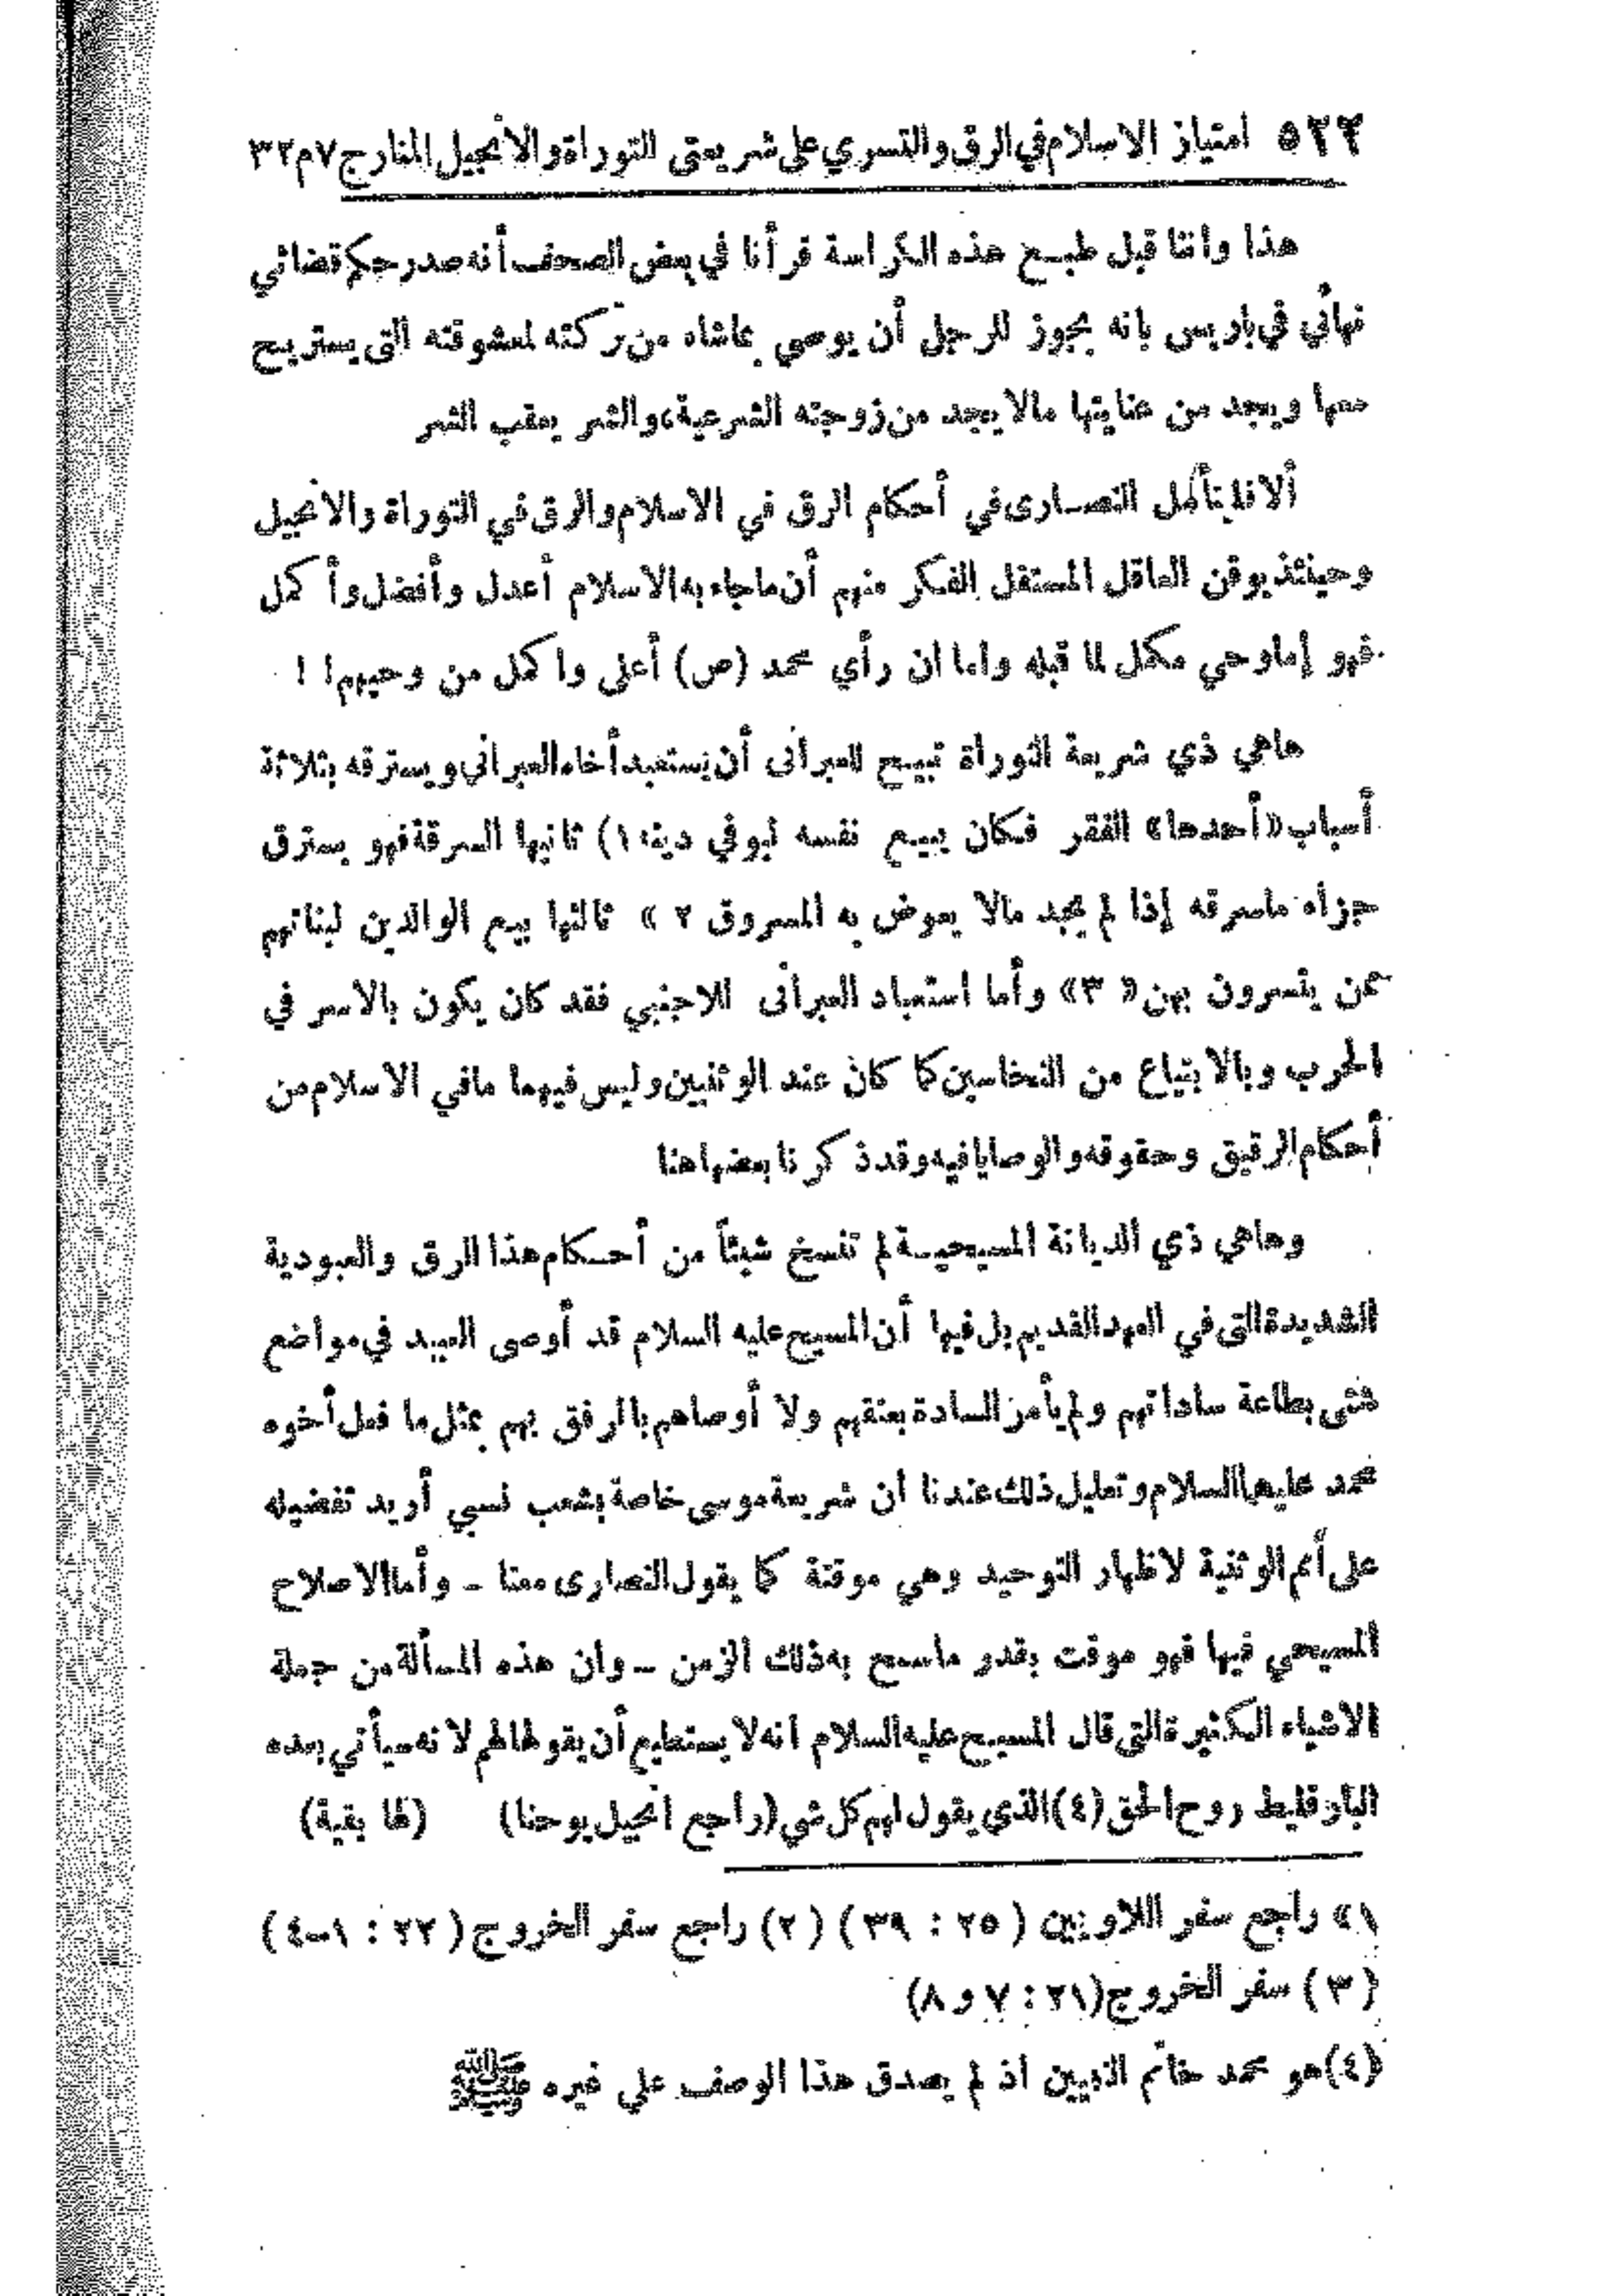 ٥٢٢ امتياز الاسلام في الرق والتسري على شريعتى التوراة والانجيل المنار ج ٧ م ٣٢
هذا واننا قبل طبع هذه الكراسة قرأنا في بعض الصحف أنه صدر حكم قضائي
نهائي في باريس بانه يجوز للرجل أن يوصي بما شاء من تركته لمعشوقته التى يستريح
معها ويجد من عنايتها مالا يجد من زوجته الشرعية، والشر يعقب الشر
ألا فليتأمل النصارى في أحكام الرق في الاسلام والرق في التوراة والانجيل
وحينئذ يوقن العاقل المستقل الفكر منهم أن ما جاء به الاسلام أعدل وأفضل وأكمل
فهو إما وحي مكمل لما قبله واما ان رأي محمد (ص) أعلى واكمل من وحيهم! !
هاهي ذي شريعة التوراة تبيح للعبرانى أن يستعبد أخاه العبراني ويسترقه بثلاثة
أسباب «أحدها» الفقر فكان يبيع نفسه ليوفي دينه ١) ثانيها السرقة فهو يسترق
جزاء ماسرقه إذا لم يجد مالا يعوض به المسروق ٢ » ثالثها بيع الوالدين لبناتهم
ممن يتسرون بهن « ٣» وأما استعباد العبرانى للاجنبي فقد كان يكون بالاسر في
الحرب وبالابتياع من النخاسين كما كان عند الوثنيين وليس فيهما مافي الاسلام من
أحكام الرقيق وحقوقه والوصايا فيه وقد ذكرنا بعضها هنا
وهاهي ذي الديانة المسيحية لم تنسخ شيئاً من أحكام هذا الرق والعبودية
الشديدة التى في العهد القديم بل فيها أن المسيح عليه السلام قد أوصى العبيد في مواضع
شتى بطاعة ساداتهم ولم يأمر السادة بعتقهم ولا أوصاهم بالرفق بهم بمثل ما فعل أخوه
محمد عليهما السلام وتعليل ذلك عندنا ان شريعة موسى خاصة بشعب نسبي أريد تفضيله
على أمم الوثنية لاظهار التوحيد وهي موقتة كما يقول النصارى معنا - وأما الاصلاح
المسيحي فيها فهو موقت بقدر ما سمح به ذلك الزمن - وان هذه المسألة من جملة
الاشياء الكثيرة التى قال المسيح عليه السلام انه لا يستطيع أن يقولها لهم لانه سيأتي بعده
البارقليط روح الحق (٤) الذى يقول لهم كل شي (راجع انجيل يوحنا) (لها بقية)
١» راجع سفر اللاويين ( ٢٥ : ٣٩ ) (٢) راجع سفر الخروج ( ٢٢ : ١-٤ )
(٣) سفر الخروج (٢١ : ٧ و ٨)
(٤) هو محمد خاتم النبيين اذ لم يصدق هذا الوصف على غيره ﷺ